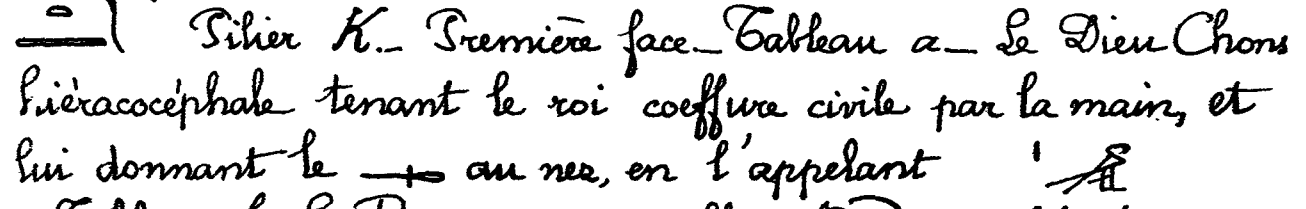 Pilier K._ Première face_ Tableau a_ Le Dieu Chons
hiéracocéphale tenant le roi coeffure civile par la main, et
lui donnant le au nez, en l'appelant